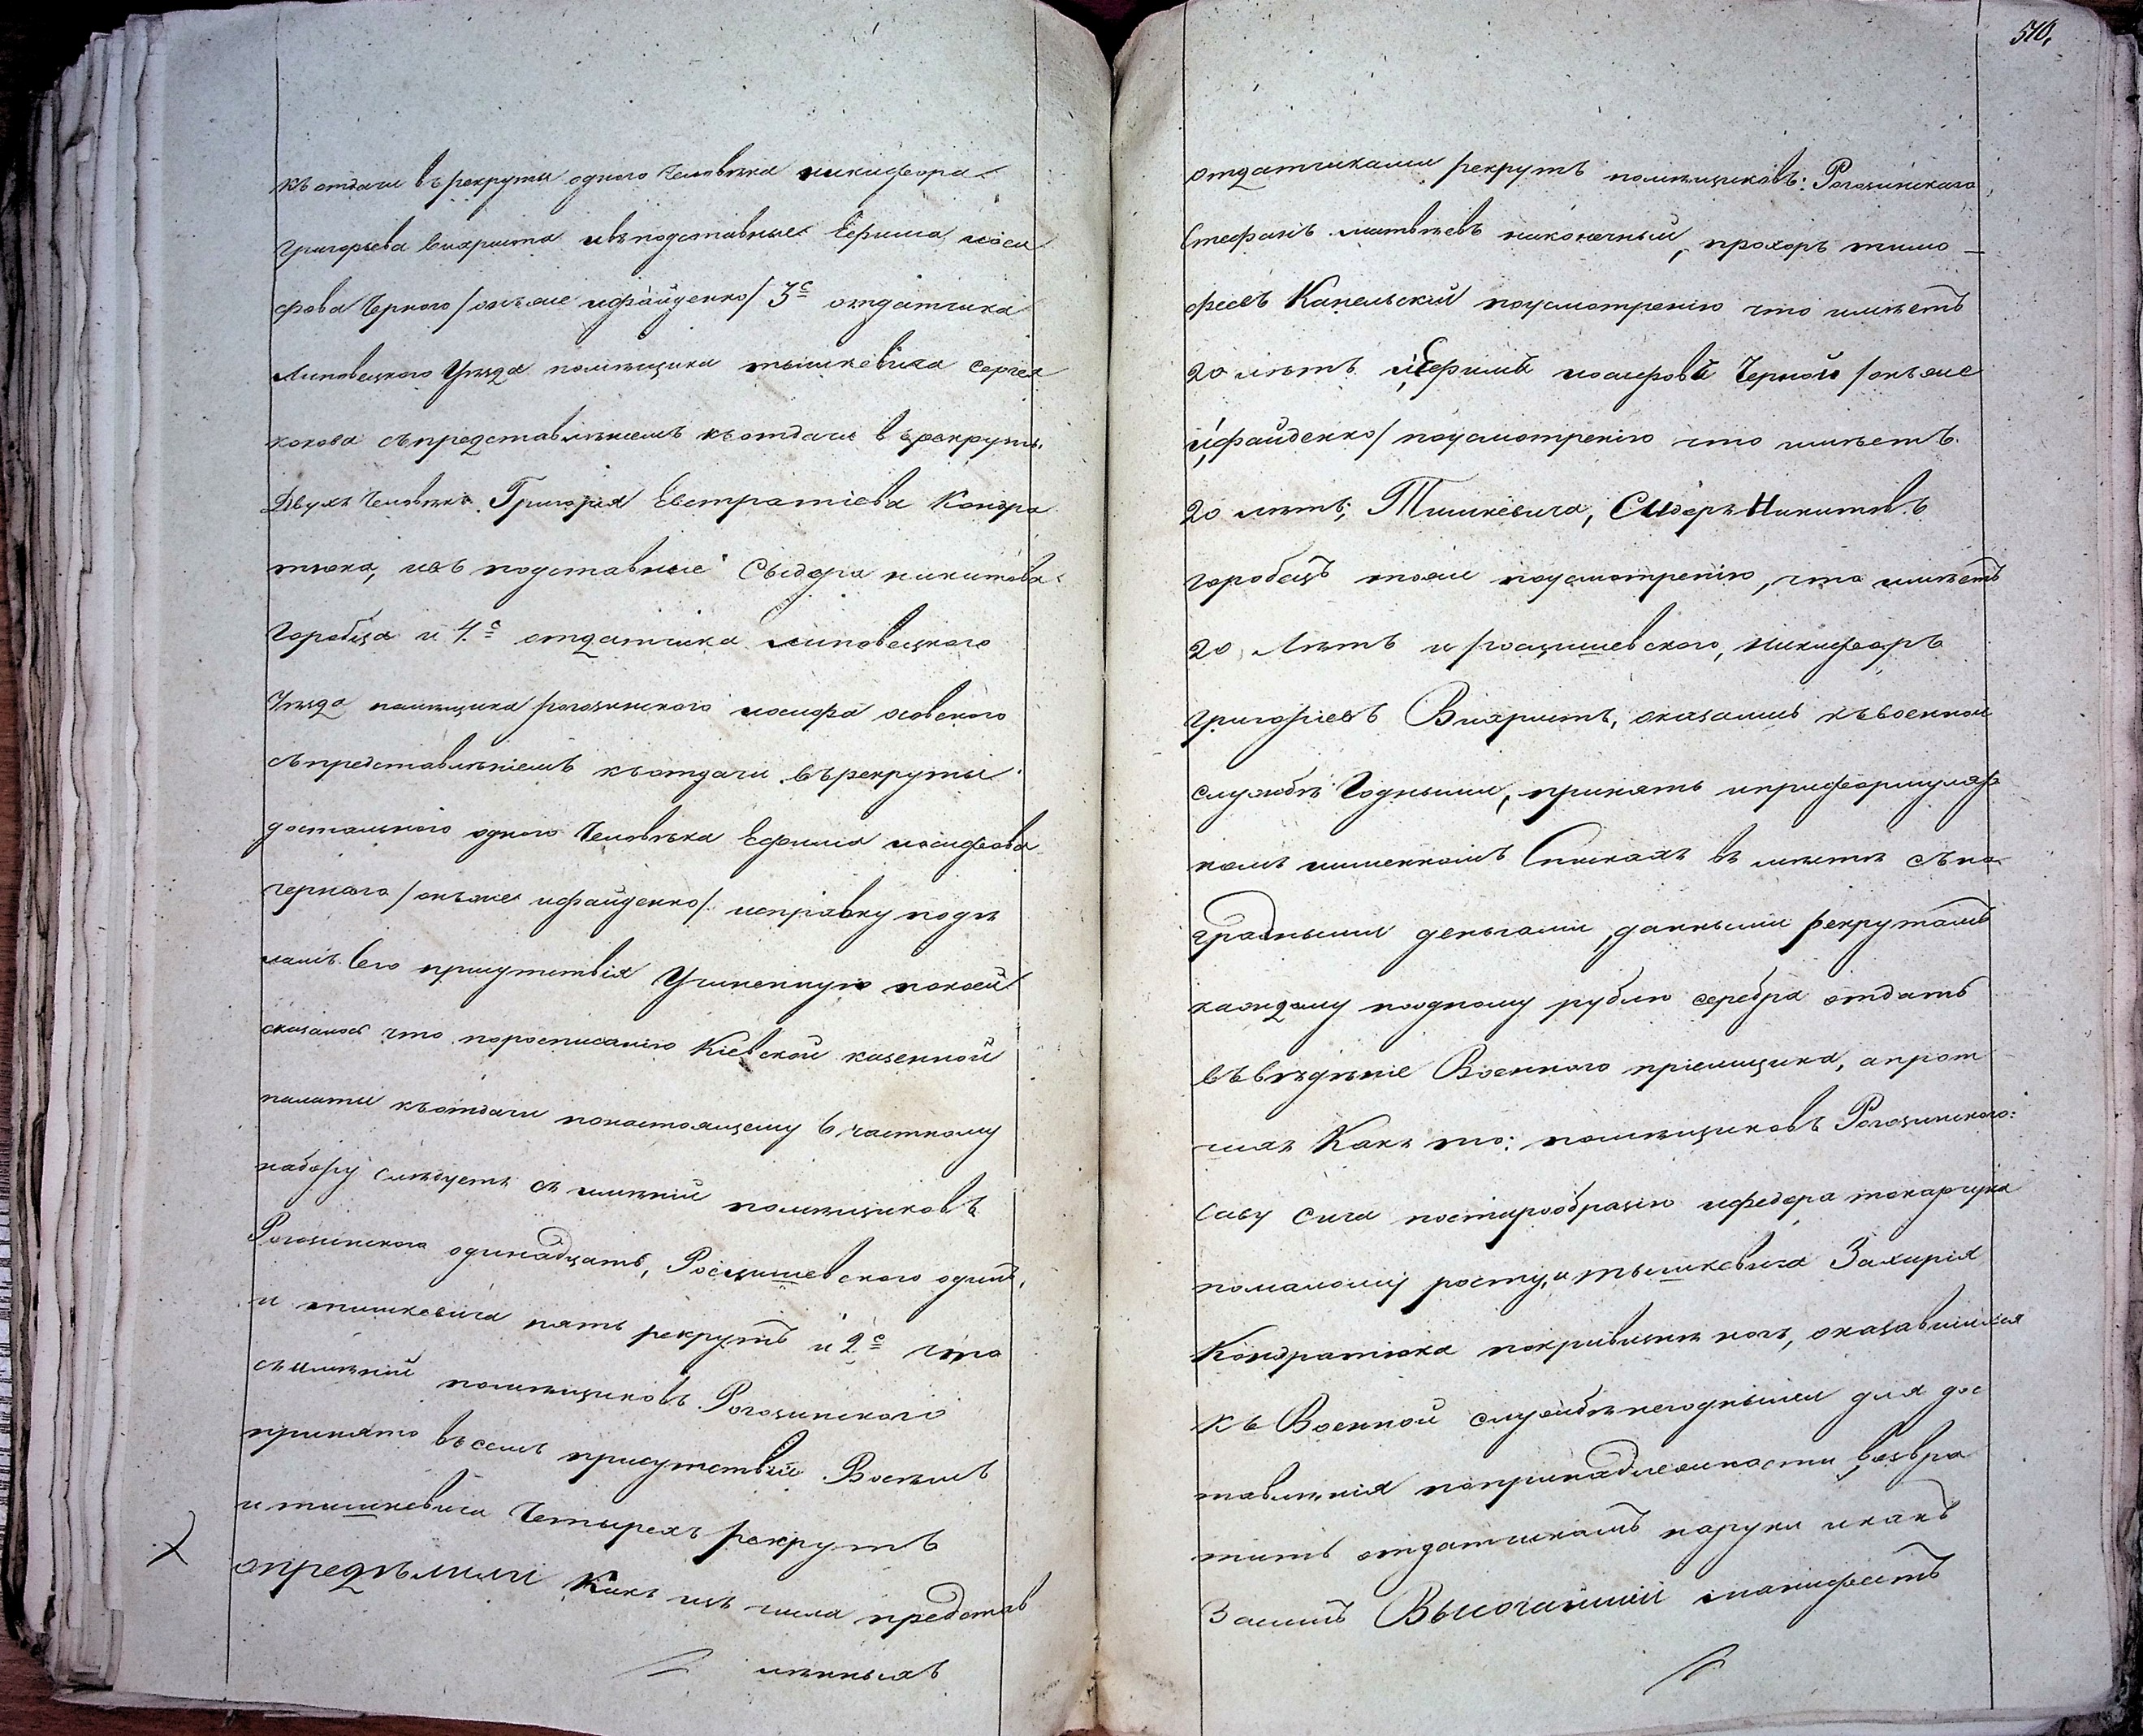 къ отдачи въ рекруты одного человѣка никифора
григорьева вихриста ивъ подставные Ефима иоси
фова Черного /онъже ифайденко/ 3е отдатчика
Липовецкого Уѣзда помѣщика тышкевича сергея
съ представлениемъ къ отдачи в рекруты
Двухъ человѣкъ Григорія Евстратіева Кондра
тюка, ивъ подставные Сыдора никитова
Горобца и 4е отдатчика липовецкого
Уѣзда помѣщика рогозинского иосифа
съ представлѣніемъ къ отдачи въ рекруты
достального одного человѣка Ефима иосифова
черного /онъже ифайденко/ исправку
сего присутствія Учиненную по коей
оказалось что поросписанію Кіевской казенной
палаты къ отдачи понастоящему 6 частному
набору слѣдуетъ съ имѣній помѣщиковъ
Рогозинского одинадцать, Росцишевского одинъ,
и тишкевича пять рекрутъ и 2е что
съ имѣній помѣщиковъ Рогозинского
принято въ семъ присутствіи Восемъ
и тишкевича Четырехъ рекрутъ
опредѣлили Какъ изъ числа представ
лѣнныхъ
510.
отдатчиками рекрутъ помѣщиковъ: Рогозинского
Стефанъ матвѣевъ наконечный, прохоръ тимо
феевъ Капельскій поусмотренію что имѣетъ
20 лѣтъ иЕфимъ иосифовъ Черной /онъже
ифайденко/ поусмотренію что имѣетъ
20 лѣтъ; Тишкевича, Сидоръ Никитовъ
горобецъ тожъ поусмотренію, что имѣетъ
20 Лѣтъ и росцишевского, никифоръ
григоріевъ Вихристъ, оказались къ военной
службѣ Годными, принять и приформуляр
номъ имменномъ Спискахъ въ мѣстѣ съ на
градными деньгами, данными рекрутамъ
каждому поодному рублю серебра отдать
въ вѣдѣніе Военного пріемщика, а прот
чихъ Какъ то: помѣщиковъ Рогозинского:
саву сича постарообразію ифедора токарчука
помалому росту, и тышкевича Захарія
Кондратюка покривизнѣ ногъ, оказавшихся
къ Военной службѣ негодными для дос
тавлѣнія попринадлежности возвра
тить отдатчикамъ наруки и какъ
Высочайшій манифестъ